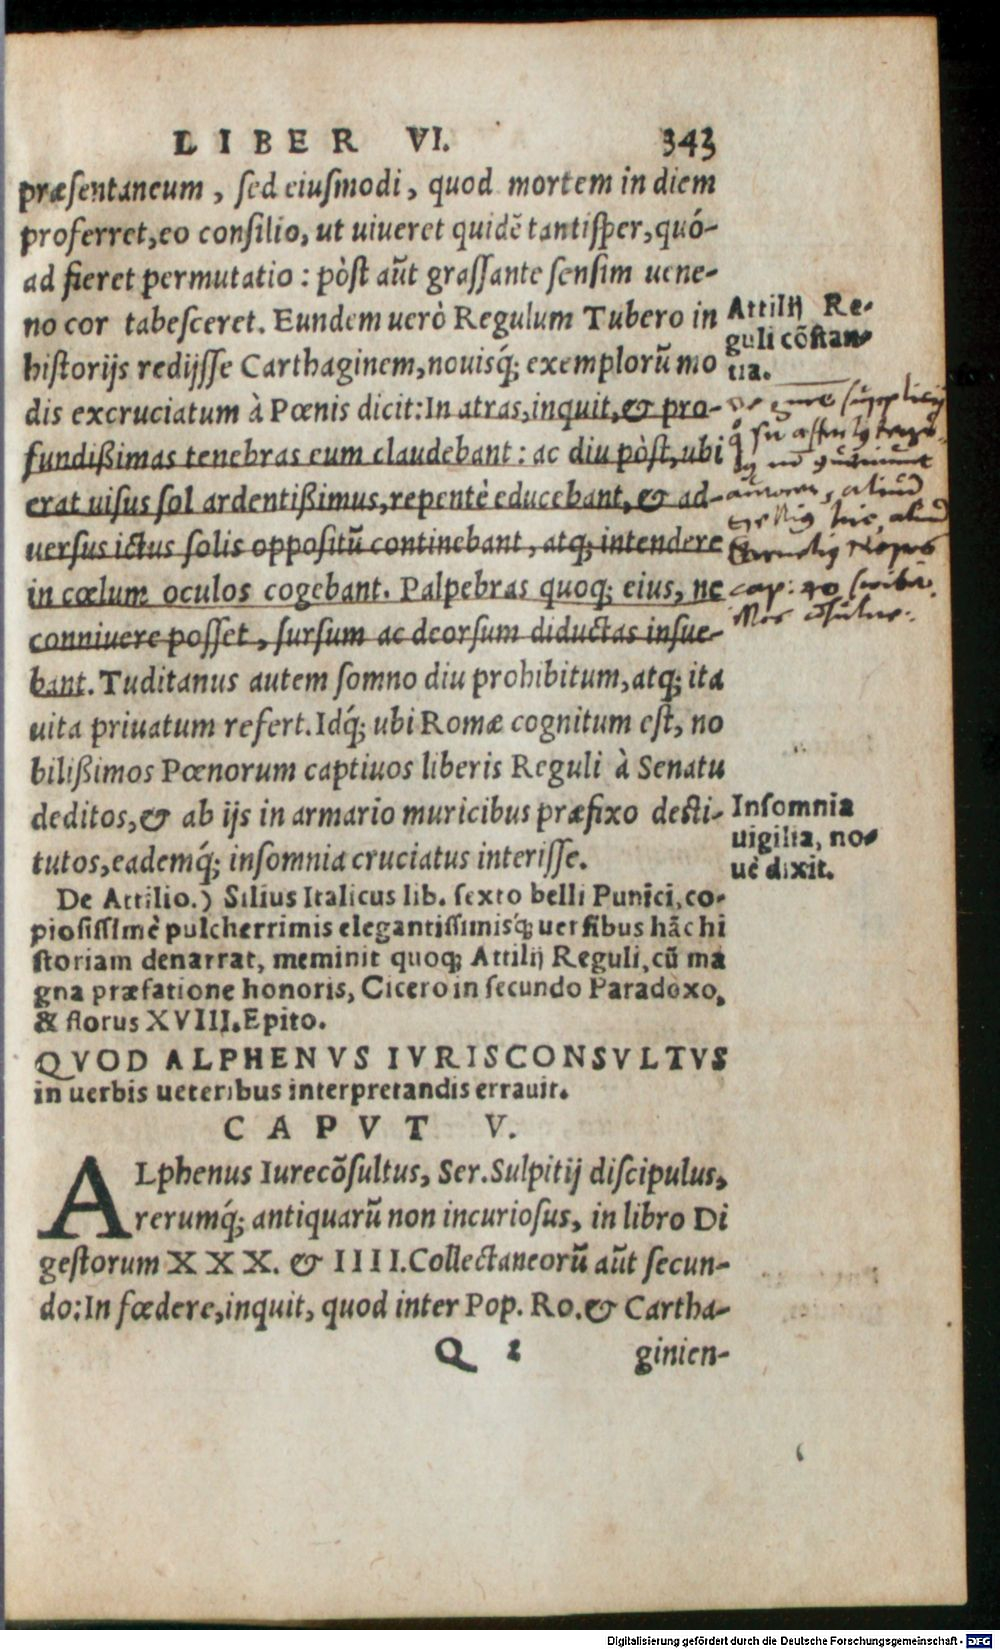 LIBER VI. 343
præsentaneum, sed eiusmodi, quod mortem in diem
proferret, eo consilio, ut uiueret quidẽ tantisper, quó-
ad fieret permutatio: pòst aũt grassante sensim uene-
no cor tabesceret. Eundem uerò Regulum Tubero in
historijs redijsse Carthaginem, nouisq́; exemplorũ mo
dis excruciatum à Pœnis dicit: In atras, inquit, & pro-
fundißimas tenebras eum claudebant: ac diu pòst, ubi
erat uisus sol ardentißimus, repentè educebant, & ad-
uersus ictus solis oppositũ continebant, atq; intendere
in cœlum oculos cogebant. Palpebras quoq; eius, ne
conniuere posset, sursum ac deorsum diductas insue-
bant. Tuditanus autem somno diu prohibitum, atq; ita
uita priuatum refert. Idq́; ubi Romæ cognitum est, no
bilißimos Pœnorum captiuos liberis Reguli à Senatu
deditos, & ab ijs in armario muricibus præfixo desti-
tutos, eademq́; insomnia cruciatus interisse.
Attilij Re-
guli cõstan-
tia.
supplicij
aliud
hic, aliud
Nepos
cap:
Insomnia
uigilia, no-
uè dixit.
De Attilio.) Silius Italicus lib. sexto belli Punici, co-
piosissimè pulcherrimis elegantissimisq́; uersibus hãc hi
storiam denarrat, meminit quoq; Attilij Reguli, cũ ma
gna præfatione honoris, Cicero in secundo Paradoxo,
& florus XVIII. Epito.
QVOD ALPHENVS IVRISCONSVLTVS
in uerbis ueteribus interpretandis errauit.
CAPVT V.
ALphenus Iurecõsultus, Ser. Sulpitij discipulus,
rerumq́; antiquarũ non incuriosus, in libro Di
gestorum XXX. & IIII. Collectaneorũ aũt secun-
do: In fœdere, inquit, quod inter Pop. Ro. & Cartha-
Q 2 ginien-
Digitalisierung gefördert durch die Deutsche Forschungsgemeinschaft - DFG